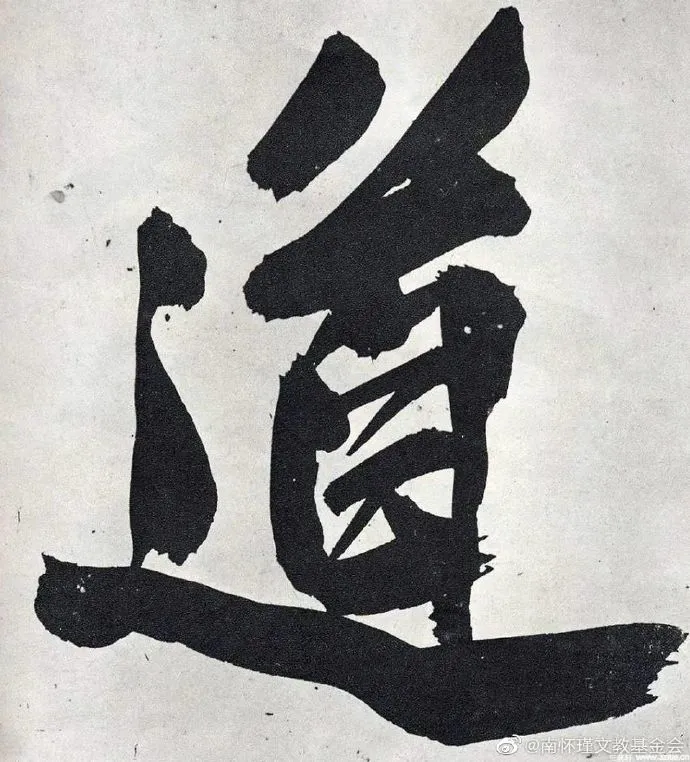 道
@南怀瑾文教基金会